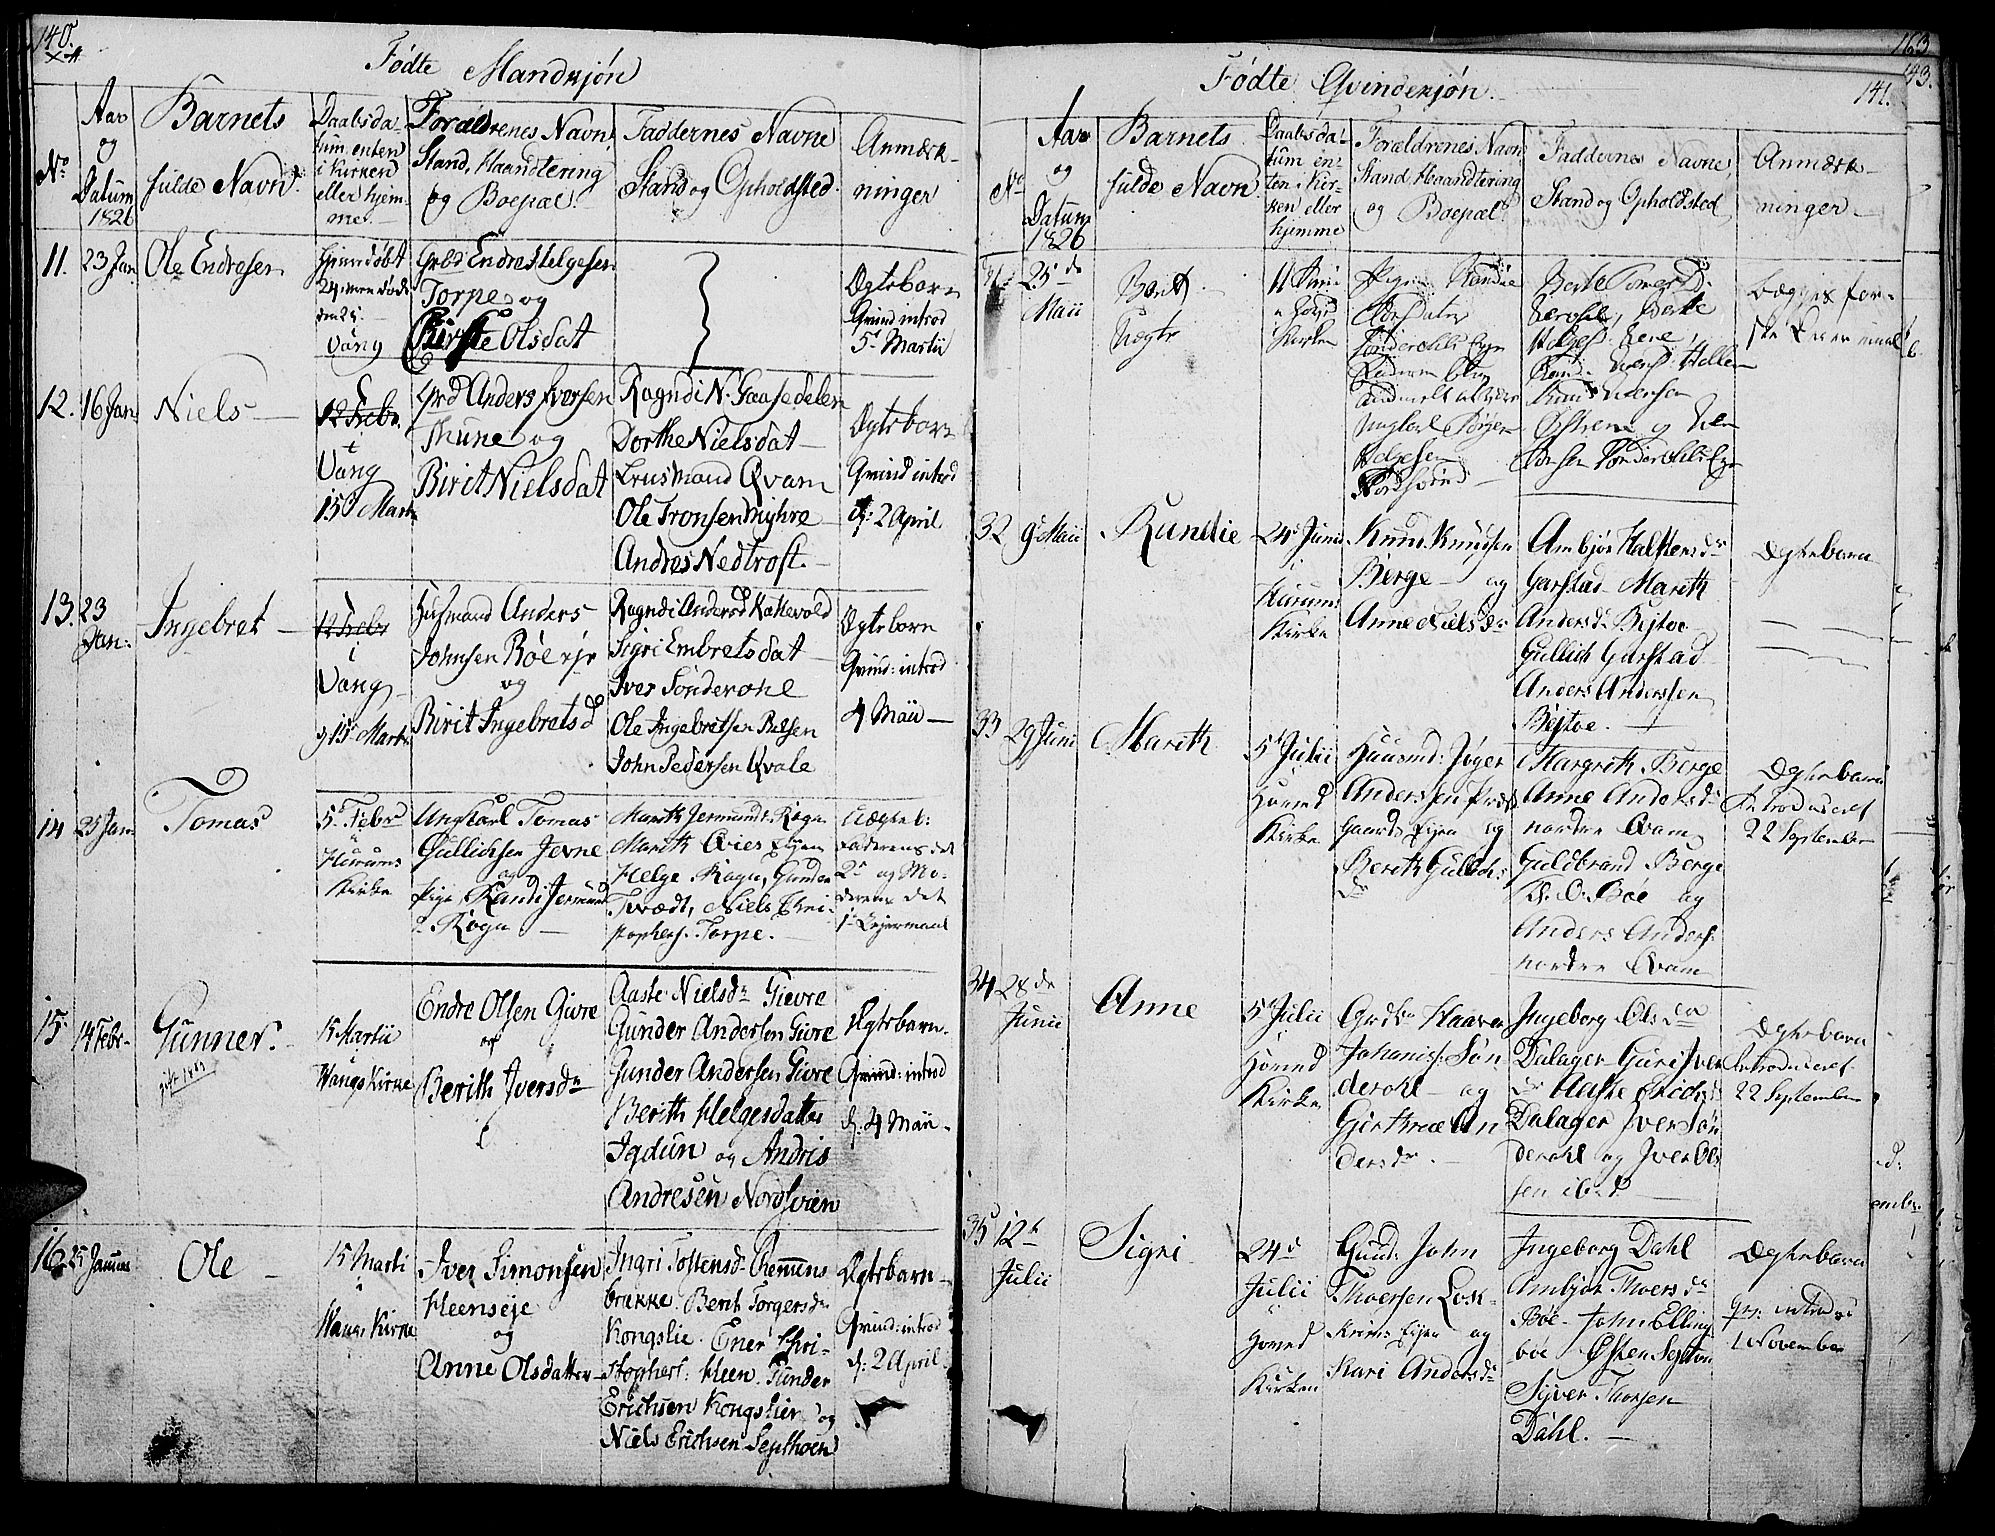 140.
Fødte Mandkjøn
No
Aar
og
Datum
1826
Barnets
fulde Navn.
Daabsda-
tum enten
i Kirken
eller hjem-
me.
Forældrenes Navn,
Stand, Haandtering
og Boepæl
Faddernes Navne
Stand og Opholdsted.
Anmærk-
ninger
11.
23 Jan
Ole Endresen
Hjemdøbt
24
den 25
Vang
Grbd Endre Helgesen
Torpe og
Kirste Olsdat
Ægtebarn
Qvind introd
5t Martii
12.
16 Jan
Niels
12 Febr.
i
Vang
15 Marti
Grbd Anders Iversen
Thune og
Birit Nielsdat
Ragndi N. Gaasedelen
Dorthe Nielsdat
Qvam
Ole Tronsen Myhre
Andres Nedtrost.
Ægtebarn
Qvind introd
d: 2 April
13.
23
Jan:
Ingebret
12 Febr
i
Vang
15 Marti
Husmand Anders
Johnsen Røe eje
og
Birit Ingebretsd
Ragndi Andersd Kattevold
Sigri Embretsdat
Iver Sønderohe
Ole Ingebretsen Belsen
John Pedersen Qvale
Ægtebarn
Qvind: introd
4 Maii
14
25 Jan
Tomas
5t Febr
Hurums
Kirke
Ungkarl Tomas
Gullichsen Jevne
og
Pige Randi Jermund
Rogn
Marith Jermundsd. Rogn
Marith Qvies Ejen
Helge Rogn, Gunder
Tvædt, Niels Chri-
stophers. Torpe.
Uægte b:
Faderens det
2t og Mo-
derens det
1t Lejermaal
15
14 Febr
Gunner.
gift 1881
15 Martii
i
Wangs Kirke
Endre Olsen Givre
og
Berith Iversdr
Aaste Nielsdr Gievre
Gunder Andersen Givre
Gunder Andersen Givre
Berith Helgesdatter
Iqdun og Andris
Andresen Nordsvien
Ægtebarn.
Qvind: introd
d: 4 Maii
16
25 Januar
Ole
15 Marti
i
Wangs Kirke
Iver Simonsen
Heenseje
og
Anne Olsdatter
Ingri Tostensdr Remmens
brække. Berit Torgersdr
Kongslie. Ener Chri-
stophers: Heen. Gunder
Erichsen Kongslien og
Niels Erichsen Septhoen
Ægtebarn
Qvind: introd
d: 2 April
163
143.
141.
Fødte Qvindekjøn.
No
Aar
og
Datum
1826
Barnets
fulde Navn
Daabsda-
tum en-
ten i Kir-
ken eller
hjemme
Forældrenes Navn
Stand Haandtering
og Boepæl
Faddernes Navne,
Stand og Opholdsted
Anmærk-
ninger
31
25de
Maii
Berit
Uægte
11 Juni
Kirken
Pigen Randie
Ungkarl Jørgen
Helgesen
Nordsvind
Knud Andersen
Østrem og
begges før-
ste Leiermaal
32
9t Maii
Rundie
24t Junii
i
Hurums
Kirke
Knud Knudsen
Berge og
Anne Nielsdr
Ambjør Halstensdr
Garstad Marith
Andersdr Bjstoe
Gullich Garstad
Anders Anderssen
Bjstoe.
Ægtebarn
33
29 Juni
Marith
5t Julii
Höined
Kirke
Huusmd: Jøger
Anderssen Præst
gaards Ejen og
Berith Gullichs
dr
Margrith Berge
Anne Andersdr
nordre Qvam
Guldbrand Berge
K. O. Bøe og
Anders Anders:
nordre Qvam
Ægtebarn
Introduceret
22 September
34
28de
Junii
Anne
5t Julii
Höined
Kirke
Grdbr Haaven
Johaniss: Søn
derohl og
Giertrud An
dersdr.
Ingeborg Olsdtr
Dalager Guri Iver
dr Aaste Erichs
Dalager Iver Søn
derohl og Iver Ols
sen ibid
Ægtebarn
Introduceret
22 September
35
12t
Julii
Sigri
24d
Julii
i
Höined
Kirken
Huusm: John
Thoersen Lok-
Krins Ejen og
Kari Andersdr
Ingeborg Dahl
Ambjør Thoersdr
Bøe John Elling
bøe Østen Septon
Syver Thorsen
Dahl.
Ægtebarn
Qv: introd
1 November